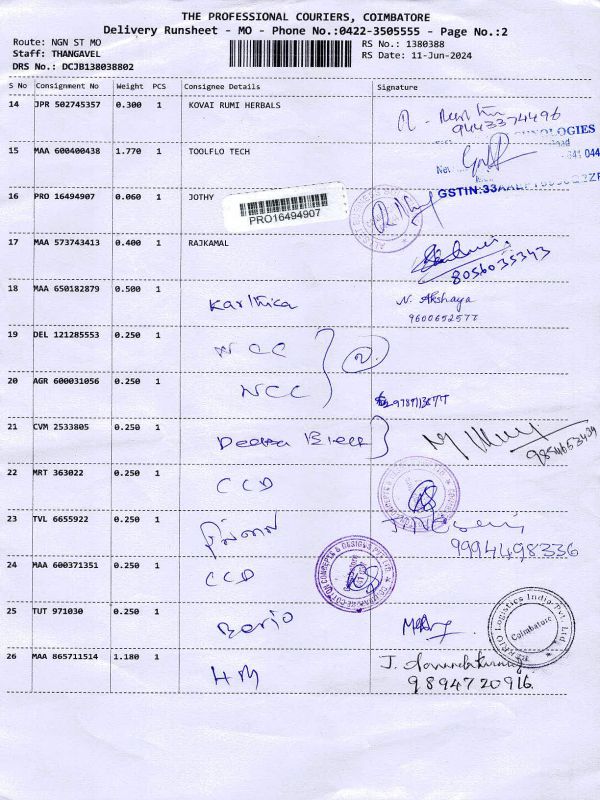 THE PROFESSIONAL COURIERS, COIMBATORE
Delivery Runsheet - MO - Phone No.:0422-3505555 - Page No.:2
Route: NGN ST MO
RS No.: 1380388
Staff: THANGAVEL
RS Date: 11-Jun-2024
DRS No.: DCJB138038802
S No Consignment No Weight PCS Consignee Details Signature
14 JPR 502745357 0.300 1 KOVAI RUMI HERBALS
9443374496
15 MAA 600400438 1.770 1 TOOLFLO TECH
16 PRO 16494907 0.060 1 JOTHY
PRO16494907
GSTIN:33
17 MAA 573743413 0.400 1 RAJKAMAL
8056035343
18 MAA 650182879 0.500 1 Karthica N. Akshaya
9600652577
19 DEL 121285553 0.250 1 NCC
2
20 AGR 600031056 0.250 1 NCC
21 CVM 2533805 0.250 1
22 MRT 363022 0.250 1 CCD
23 TVL 6655922 0.250 1
9994498336
24 MAA 600371351 0.250 1 CCD
25 TUT 971030 0.250 1
Logistics India Pvt. Ltd.
Coimbatore
26 MAA 865711514 1.180 1 HM
9894720916